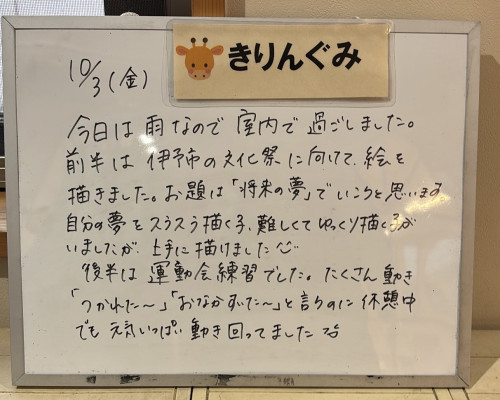 きりんぐみ
10/3(金)
今日は雨なので室内で過ごしました。
前半は伊予市の文化祭に向けて、絵を
描きました。お題は「将来の夢」でいこうと思います。
自分の夢をスラスラ描く子、難しくてゆっくり描く子が
いましたが、上手に描けました
後半は運動会練習でした。たくさん動き
「つかれた〜」「おなかすいた〜」と言うのに休憩中
でも元気いっぱい動き回ってました